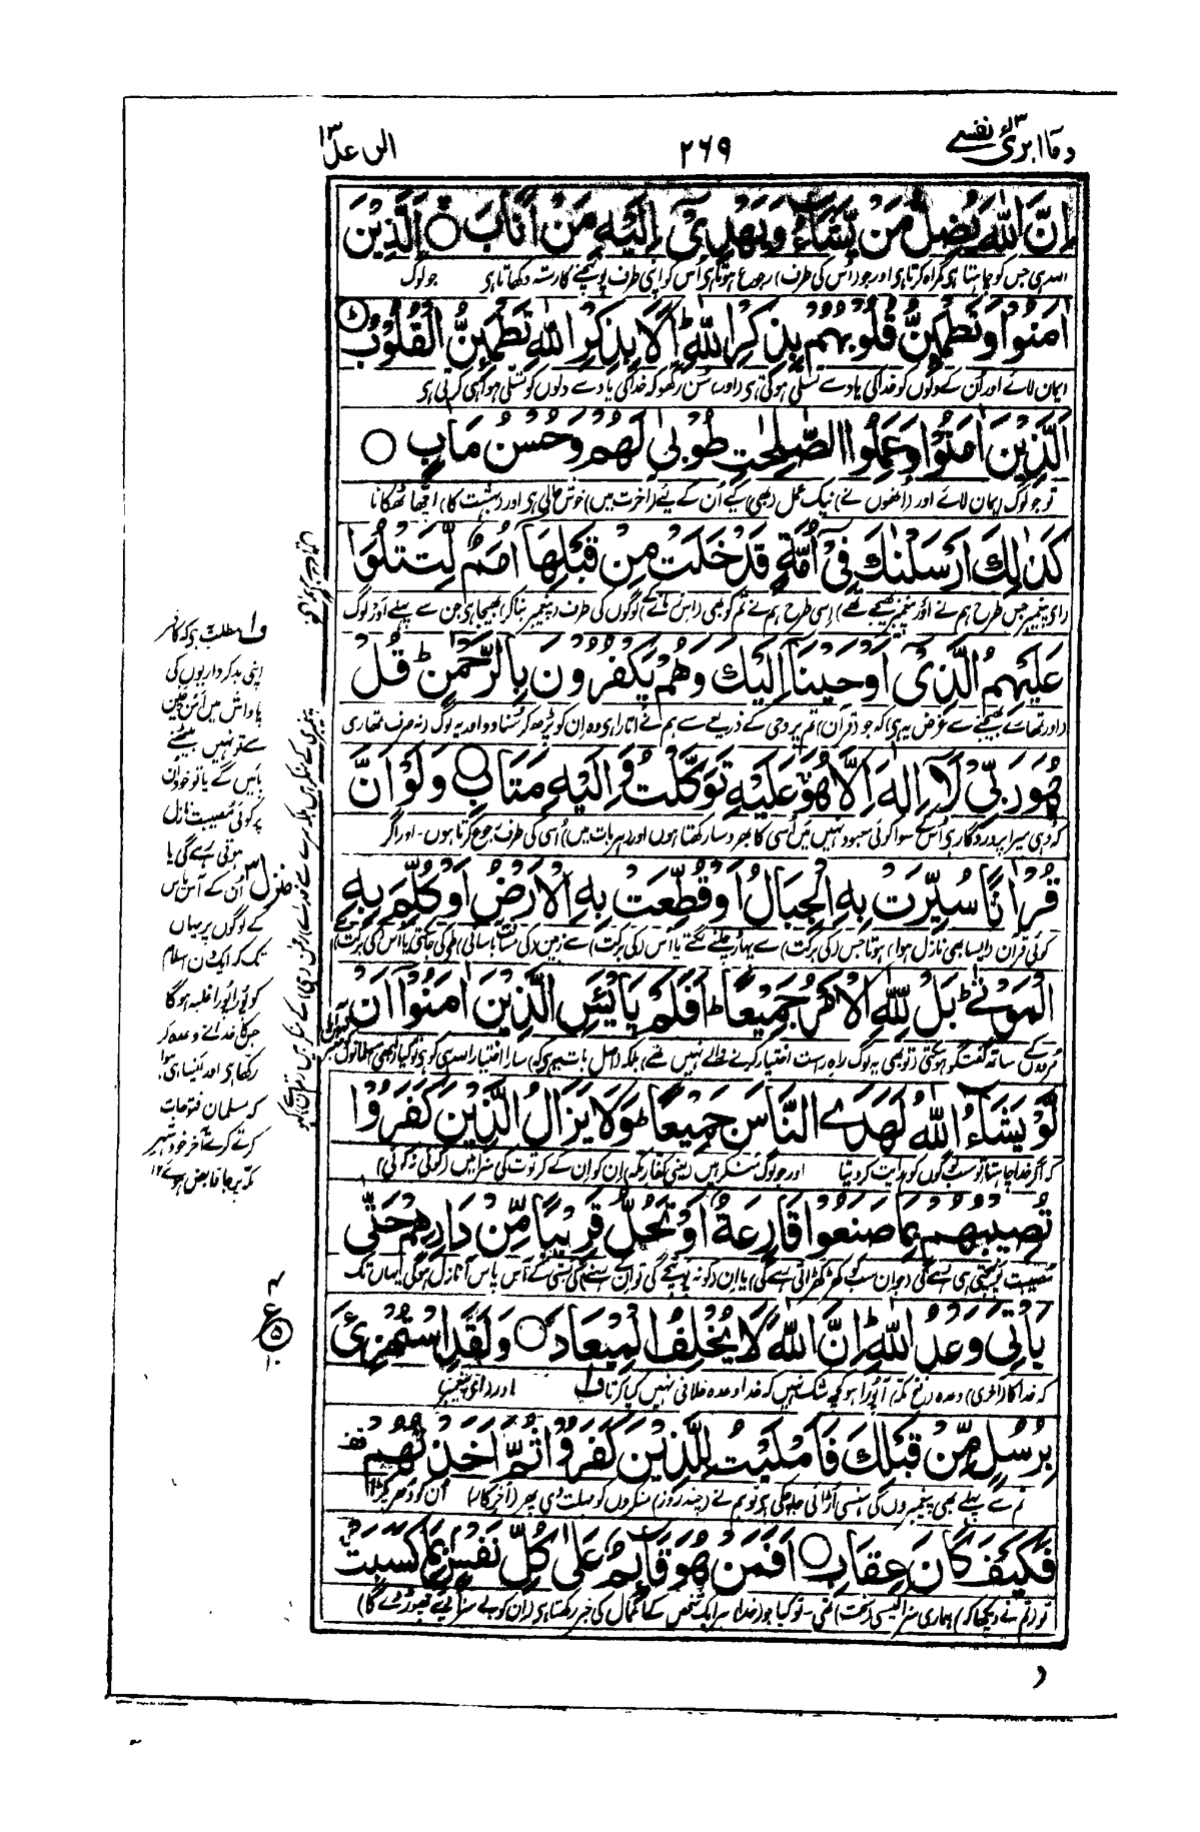 وما ابرئ نفسی ۱۳
۲۶۹
الرعد ۱۳
اِنَّ اللّٰهَ يُضِلُّ مَنْ يَّشَآءُ وَيَهْدِىْٓ اِلَيْهِ مَنْ اَنَابَ ○ اَلَّذِيْنَ
اللہ ہی جس کو چاہتا ہی گمراہ کرتا ہی اور جو (اُس کی طرف) رجوع ہوتا ہی اُس کو اپنی طرف پہنچنے کا رستہ دکھاتا ہی جو لوگ
اٰمَنُوْا وَتَطْمَئِنُّ قُلُوْبُهُمْ بِذِكْرِ اللّٰهِ ؕ اَلَا بِذِكْرِ اللّٰهِ تَطْمَئِنُّ الْقُلُوْبُ ؕ
ایمان لائے اور اُن کے دلوں کو خدا کی یاد سے تسلی ہوتی ہی (اور) سُن رکھو کہ خدا کی یاد سے دلوں کو تسلی ہوا ہی کرتی ہی
اَلَّذِيْنَ اٰمَنُوْا وَعَمِلُوا الصّٰلِحٰتِ طُوْبٰى لَهُمْ وَحُسْنُ مَاٰبٍ ○
تو جو لوگ ایمان لائے اور (اُنھوں نے) نیک عمل (بھی) کیے اُن کے لیے (آخرت میں) خوش حالی ہی اور (بہشت کا) اچھا ٹھکانا
كَذٰلِكَ اَرْسَلْنٰكَ فِىْٓ اُمَّةٍ قَدْ خَلَتْ مِنْ قَبْلِهَآ اُمَمٌ لِّتَتْلُوَا۟
(ای پیغمبر جس طرح ہم نے اَور پیغمبر بھیجے تھے) اِسی طرح ہم نے تم کو بھی لوگوں کی طرف (پیغمبر بنا کر) بھیجا ہی جن سے پہلے اَور لوگ
عَلَيْهِمُ الَّذِىْٓ اَوْحَيْنَآ اِلَيْكَ وَهُمْ يَكْفُرُوْنَ بِالرَّحْمٰنِ ؕ قُلْ
(اور تمھارے بھیجنے سے غرض یہ ہی) کہ جو (قرآن) تم پر وحی کے ذریعے سے ہم نے اتارا ہی وہ ان کو پڑھ کر سُنا دو اور یہ لوگ (نہ صرف تمھاری
هُوَ رَبِّىْ لَآ اِلٰهَ اِلَّا هُوَ ۚ عَلَيْهِ تَوَكَّلْتُ وَاِلَيْهِ مَتَابِ ○ وَلَوْ اَنَّ
کہ وہی میرا پروردگار ہی اُس کے سوا کوئی معبود نہیں میں اُسی کا بھروسا رکھتا ہوں اور (ہر بات میں) اُسی کی طرف رجوع کرتا ہوں ۔ اور اگر
قُرْاٰنًا سُيِّرَتْ بِهِ الْجِبَالُ اَوْ قُطِّعَتْ بِهِ الْاَرْضُ اَوْ كُلِّمَ بِهِ
کوئی قرآن (ایسا بھی نازل ہوا) ہوتا جس (کی برکت) سے پہاڑ چلنے لگتے یا اُس (کی برکت) سے زمین (کی مسافت بآسانی) طی کی جاسکتی یا اُس (کی برکت)
الْمَوْتٰى ؕ بَلْ لِّلّٰهِ الْاَمْرُ جَمِيْعًا ؕ اَفَلَمْ يَايْـَٔسِ الَّذِيْنَ اٰمَنُوْٓا اَنْ
مُردوں کے ساتھ گفتگو ہو سکتی (تو بھی یہ لوگ راہ راست اختیار کرنے والے نہیں تھے) بلکہ (اصل بات یہ ہی کہ) سارا اختیار اللہ ہی کو ہی تو کیا (ابھی) مسلمانوں
لَّوْ يَشَآءُ اللّٰهُ لَهَدَى النَّاسَ جَمِيْعًا ؕ وَلَا يَزَالُ الَّذِيْنَ كَفَرُوْا
کہ اگر خدا چاہتا تو سب لوگوں کو ہدایت کر دیتا اور جو لوگ منکر ہیں (یعنی کفار مکہ) اِن کو اِن کے کرتوت کی سزا میں (کوئی نہ کوئی)
تُصِيْبُهُمْ بِمَا صَنَعُوْا قَارِعَةٌ اَوْ تَحُلُّ قَرِيْبًا مِّنْ دَارِهِمْ حَتّٰى
مصیبت پہنچتی ہی رہے گی (جو ان سب کو کھڑکھڑاتی رہے گی) یا اِن (کو نہ پہونچے گی تو) ان کی بستی کے آس پاس آ نازل ہوگی یہاں تک
يَاْتِىَ وَعْدُ اللّٰهِ ؕ اِنَّ اللّٰهَ لَا يُخْلِفُ الْمِيْعَادَ ○ وَلَقَدِ اسْتُهْزِئَ
کہ خدا کا (آخری) وعدہ (فتح مکہ) آ پُورا ہو کچھ شک نہیں کہ خدا وعدہ خلافی نہیں کیا کرتا ف۱ اور (ای پیغمبر)
بِرُسُلٍ مِّنْ قَبْلِكَ فَاَمْلَيْتُ لِلَّذِيْنَ كَفَرُوْا ثُمَّ اَخَذْتُهُمْ
تم سے پہلے بھی پیغمبروں کی ہنسی اُڑائی جا چکی ہی تو ہم نے (چند روز) منکروں کو مہلت دی پھر (آخرکار) اُن کو دھر پکڑا
فَكَيْفَ كَانَ عِقَابِ ○ اَفَمَنْ هُوَ قَآئِمٌ عَلٰى كُلِّ نَفْسٍۭ بِمَا كَسَبَتْ
تو (تم نے دیکھا کہ) ہماری سزا کیسی (سخت) تھی ۔ تو کیا جو (خدا) ہر ایک شخص کے اعمال کی خبر رکھتا ہی (ان کو بے سزا دیے چھوڑ دے گا)
ف۱ مطلب یہ کہ کافر
اپنی بدکرداریوں کی
پاداش میں امن چین
سے تو نہیں بیٹھنے
پائیں گے یا تو خود اُن
پر کوئی مصیبت نازل
ہوتی رہے گی یا
اُن کے آس پاس
کے لوگوں پر یہاں
تک کہ ایک دن اسلام
کو پُورا پُورا غلبہ ہوگا
جس کا خدا نے وعدہ کر
رکھا ہی اور ایسا ہی ہوا
کہ مسلمان فتوحات
کرتے کرتے آخر خود شہر
مکہ پر جا قابض ہوئے ۱۲
منزل ۳
ع
۵
۱۰